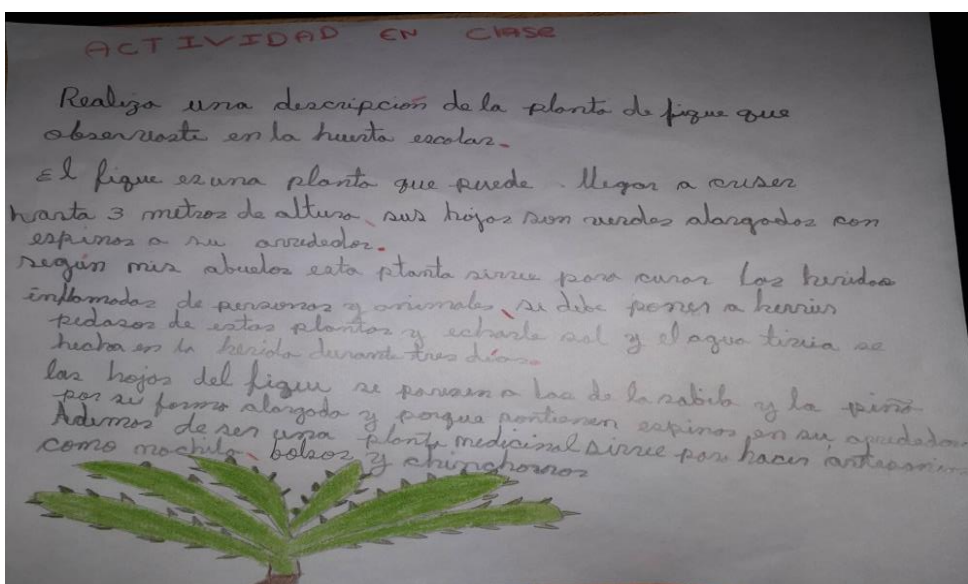 ACTIVIDAD EN Clase
Realiza una descripción de la planta de fique que
observaste en la huerta escolar.
El fique es una planta que puede llegar a creser
hasta 3 metros de altura, sus hojas son verdes alargadas con
espinas a su arrededor.
según mis abuelos esta planta sirve para curar las heridas
inflamadas de personas y animales, se debe poner a hervir
pedasos de estas plantas y echarle sal y el agua tivia se
hecha en la herida durante tres días.
las hojas del fique se paresen a las de la sabila y la piña
por su forma alargada y porque contienen espinas en su
Ademas de ser una planta medicinal sirve para hacer
como mochila, bolsos y chinchorros